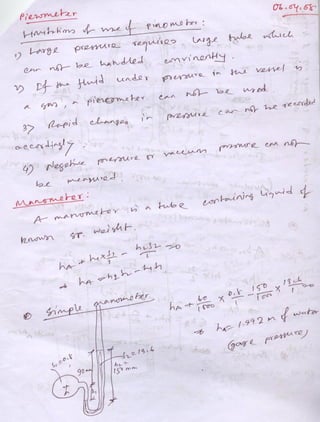 Piezometer
06.04.08
Limitations of use of Piezometer:
1) Large pressure requires large tube which
can not be handled convinently.
2) If the fluid under pressure in the vessel is
a gas, a piezometer can not be used.
3) Rapid changes in pressure can not be recorded
accordingly
4) Negative pressure or vaccum pressure can not
be measured.
Manometer:
A manometer is a tube containing liquid of
known sp. weight.
simple manometer
(gauge pressure)